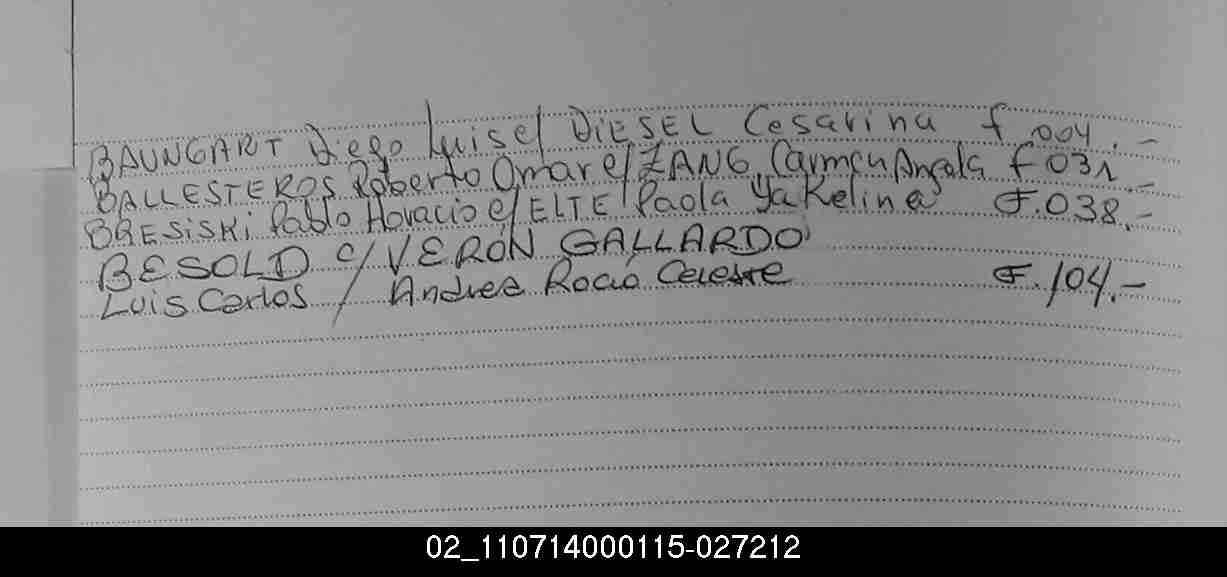 BAUNGART Diego Luis c/ DIESEL Cesarina f 004.-
BALLESTEROS Roberto Omar c/ ZANG, Carmen Angela f 031.-
BRESISKI Pablo Horacio c/ ELTE Paola Yakelina F.038.-
BESOLD c/ VERÓN GALLARDO
Luis Carlos / Andrea Rocío Celeste F.104.-
02_110714000115-027212